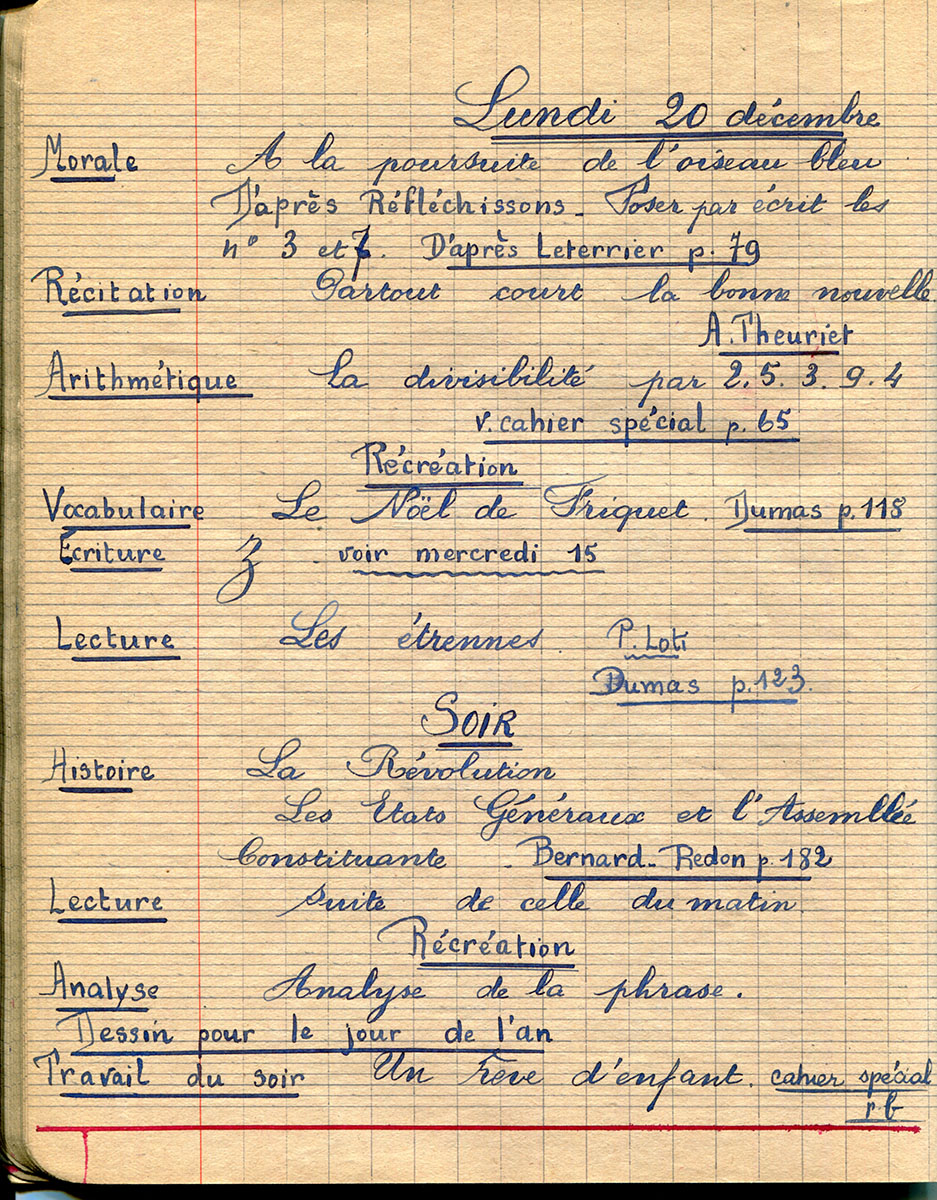 Lundi 20 décembre
Morale A la poursuite de l'oiseau bleu
D'après Réfléchissons - Poser par écrit les
n° 3 et 7. D'après Leterrier p. 79
Récitation Partout court la bonne nouvelle
A. Theuriet
Arithmétique La divisibilité par 2. 5. 3. 9. 4
v. cahier spécial p. 65
Récréation
Vocabulaire Le Noël de Friquet. Dumas p. 118
Ecriture z voir mercredi 15
Lecture Les étrennes. P. Loti
Dumas p. 123.
SOIR
Histoire La Révolution
Les Etats Généraux et l'Assemblée
Constituante - Bernard-Redon p. 182
Lecture suite de celle du matin.
Récréation
Analyse Analyse de la phrase.
Dessin pour le jour de l'an
Travail du soir Un rêve d'enfant. cahier spécial